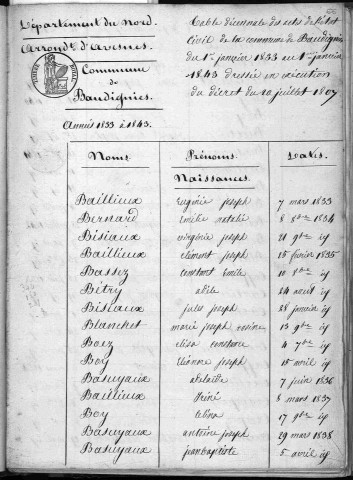 Département du Nord.
Arrondt. d'Avesnes.
TIMBRE ROYAL
Commune
de
Baudignies.
Années 1833 à 1843.
Table décennale des actes de l'état
civil de la commune de Baudignies
du 1er janvier 1833 au 1er janvier
1843 dressée en exécution
du décret du 20 juillet 1807
Noms Prénoms Dates.
Naissances.
Baillieux Eugénie joseph 7 mars 1833
Bernard Emilie natalie 8 8bre 1834
Bisiaux virginie joseph 21 9bre id
Baillieux clément joseph 15 février 1835
Bassez constant Emile 10 id
Bétry adèle 24 aout id
Bisiaux jules joseph 28 janvier id
Blanchet marie joseph rosine 13 9bre id
Boez elisa constance 4 7bre id
Boy Etienne joseph 15 avril id
Basuyaux adelaïde 7 juin 1836
Baillieux Iréné 8 mars 1837
Bey celina 17 9bre id
Basuyaux antoine joseph 29 mars 1838
Basuyaux jean baptiste 5 avril id